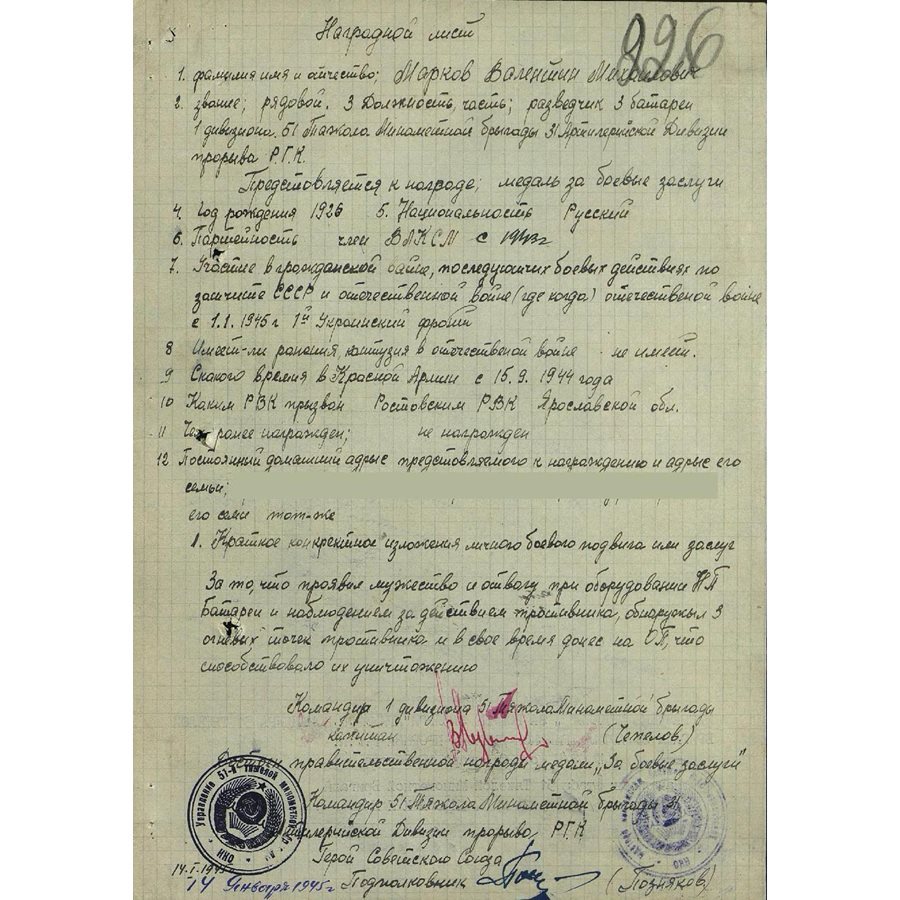 Наградной лист
226
1. фамилия имя и отчество; Марков Валентин Михайлович
2. звание; рядовой. 3 Должность, часть; разведчик 3 батареи
1 дивизиона. 51 Тяжола Минометной бригады 31 Артилерийской Дивизии
прорыва Р.Г.К.
Представляется к награде; медаль за боевые заслуги
4. Год рождения 1926 5. Национальность Русский
6. Партейность член ВЛКСМ с 1943г
7. Участие в гражданской войне, последующих боевых действиях по
защите СССР и отечественной войне (где когда) отечественой войне
с 1.1.1945 г 1й Украинский фронт
8 Имеет-ли ранения, контузия в отечественой войне не имеет.
9 Скакого время в Красной Армии с 15.9.1944 года
10 Каким РВК призван Ростовским РВК Ярославской обл.
11 Чем ранее награжден; не награжден
12 Постоянный домашний адрыс представляемого к награждению и адрыс его
семьи;
его семи там-же
1. Краткое конкретное изложения личного боевого подвига или заслуг
За то, что проявил мужество и отвагу при оборудование НП
Батареи и наблюдением за действием противника, обнаружыл 3
огневых точек противника и в свое время донес на ОП, что
способствовало их уничтожению
Командир 1 дивизиона 51 Тяжола Минометной бригады
Капитан (Чепелов.)
Достоен правительственной награды медали „За боевые заслуги"
Командир 51 Тяжола Минометной бригады 31
Артилерийской Дивизии прорыва, Р.Г.К
Герой Советского Союза
Подполковник (Позняков)
14.I.1945
14 Январь 1945г
Управление 51-й тяжелой минометной
НКО